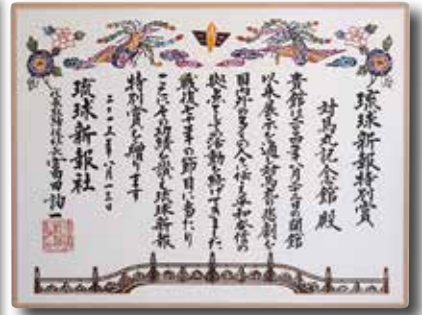 琉球新報特別賞
対馬丸記念館 殿
貴館は二〇〇四年八月二十二日の開館
以来展示を通し対馬丸の悲劇を
国内外の多くの人に伝え平和発信の
拠点としての活動を続けてきました
戦後七十年の節目に当たり
ここにその功績を讃え琉球新報
特別賞を贈ります
二〇一五年八月
琉球新報社
代表取締役社長 富田詢一